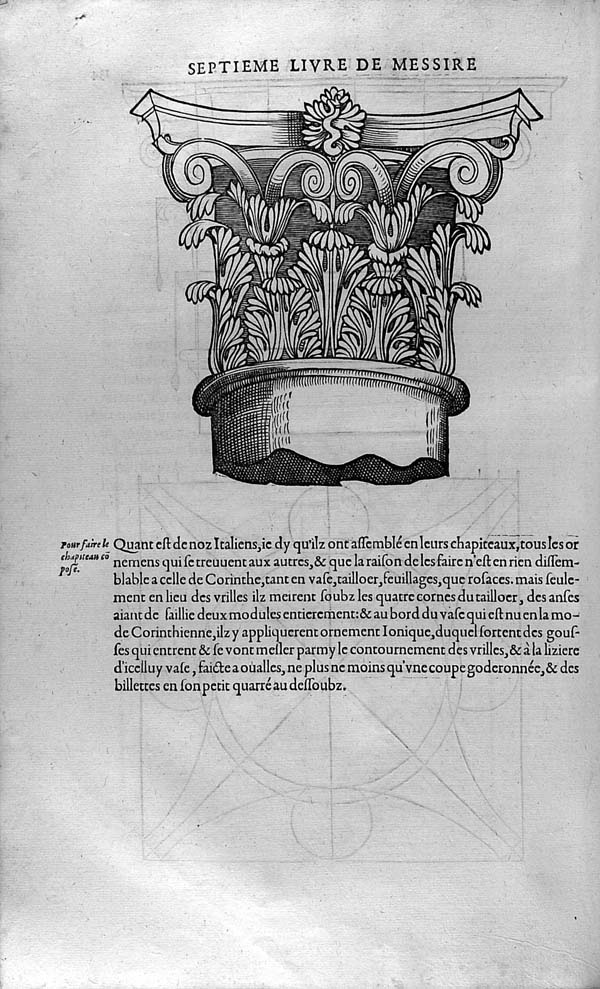 SEPTIEME LIVRE DE MESSIRE
Pour faire le
chapiteau cõ
posé.
Quant est de noz Italiens, ie dy qu'ilz ont assemblé en leurs chapiteaux, tous les or
nemens qui se treuuent aux autres, & que la raison de les faire n'est en rien dissem-
blable a celle de Corinthe, tant en vase, tailloer, feuillages, que rosaces. mais seule-
ment en lieu des vrilles ilz meirent soubz les quatre cornes du tailloer, des anses
aiant de saillie deux modules entierement: & au bord du vase qui est nu en la mo-
de Corinthienne, ilz y appliquerent ornement Ionique, duquel sortent des gous-
ses qui entrent & se vont mesler parmy le contournement des vrilles, & à la liziere
d'icelluy vase, faicte a oualles, ne plus ne moins qu'vne coupe goderonnée, & des
billettes en son petit quarré au dessoubz.